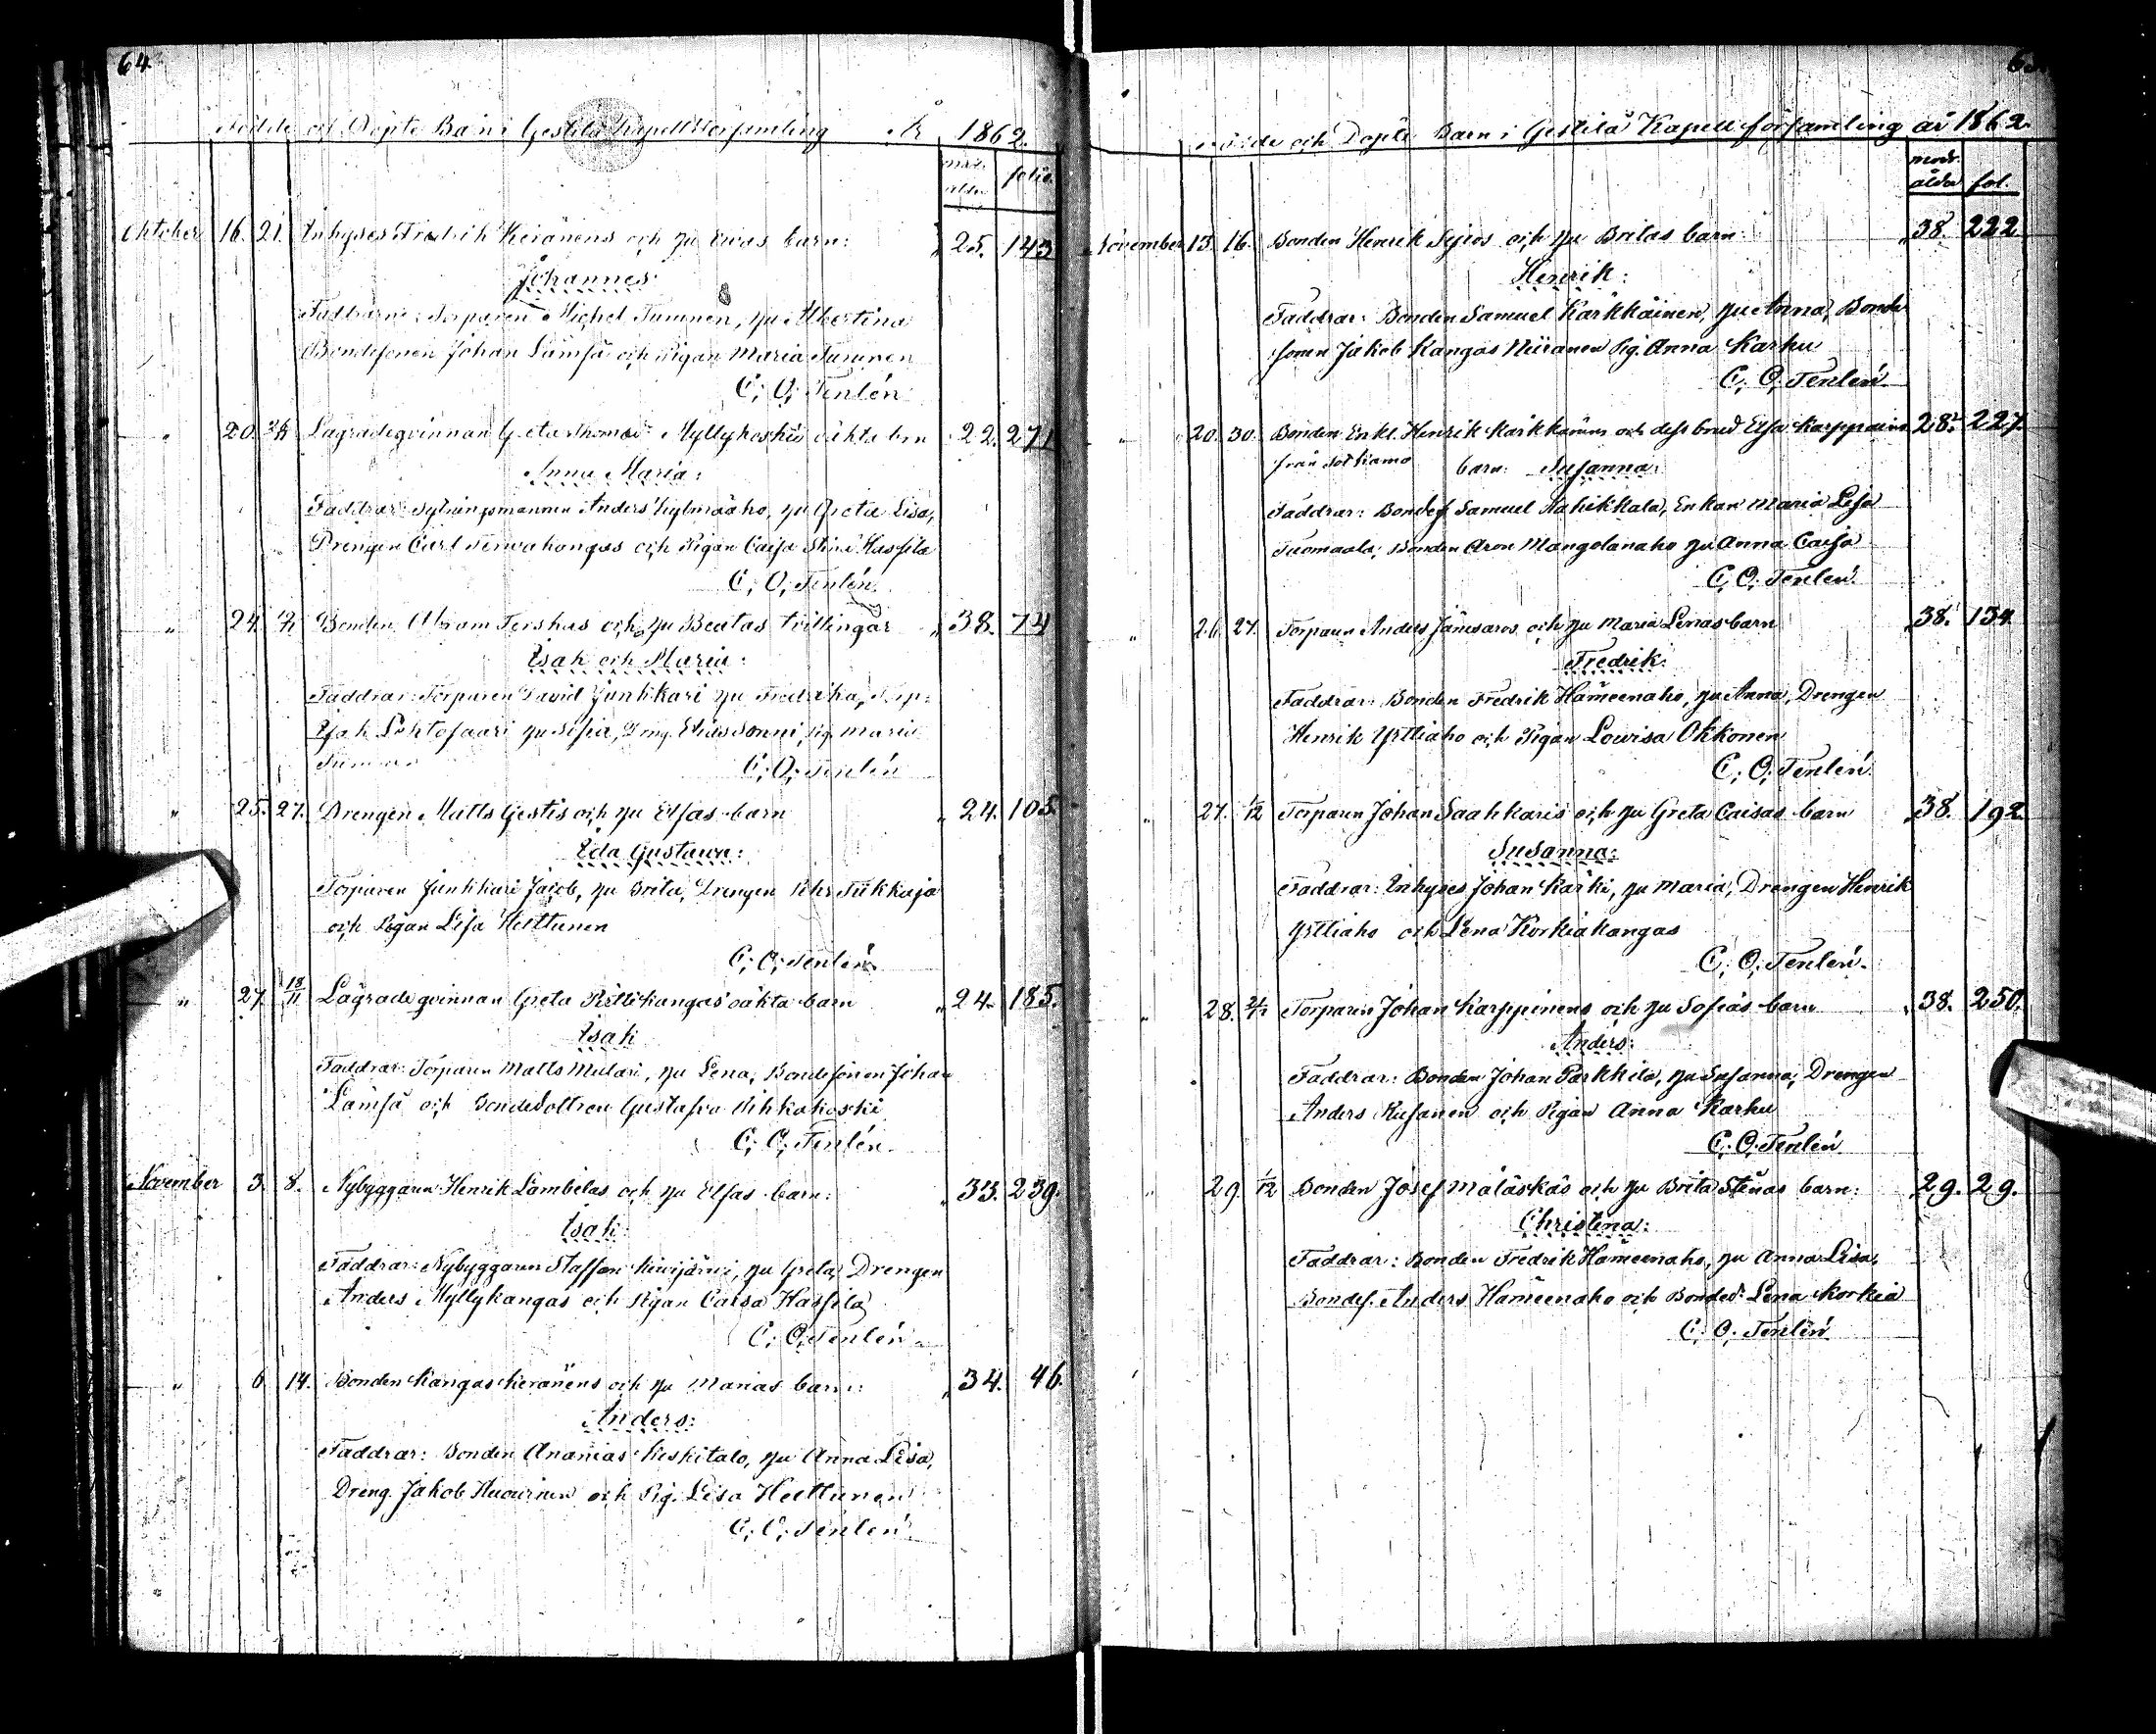 64
Födde och Döpte Barn i Gestilä Kapellförsamling År 1862.
ålder folio
Oktober 16. 21. Inhyses Fredrik Keränens och hu Ewas barn: 25. 143
Johannes
Faddrarne: Torparen Michel Tuminen, hu Albertina
Bondesonen Johan Lämsä och Pigan Maria Tuminen
C. O. Tenlén
" 20. Lägradeqvinnan Greta Myllykoskis oäkta brn 22. 271
Anna Maria:
Faddrar: Anders Kylmäaho, hu Greta Lisa,
Drengen Carl Terwakangas och Pigan Caisa Stina Hassila
C. O. Tenlén.
" 24. Bonden Abram Terskas och hu Beatas tvillingar 38. 74
Isak och Maria:
Faddrar: Torparen David Junkkari hu Fredrika, Torp:
Isak Lehtosaari hu Sofia, Dreng Elias Sonni, Pig Maria
C. O. Tenlén
" 25. 27. Drengen Matts Gestis och hu Elsas barn 24. 105.
Eda Gustawa:
Torparen Junkkari Jacob, hu Brita, Drengen Pehr Tikkaja
och Pigan Lisa Heittunen
C. O. Tenlén
" 27. 18/11 Lägrade qvinnan Greta Rittikangas oäkta barn 24. 185.
Isak
Faddrar: Torparen Matts Mulari, hu Lena, Bondesonen Johan
Lämsä och Bondedottren Gustafva Pihkakoski
C. O. Tenlén
November 3. 8. Nybyggaren Henrik Lambelas och hu Elsas barn: 33. 239.
Isak
Faddrar: Nybyggaren Staffan Kiwijärwi, hu Greta, Drengen
Anders Myllykangas och Pigan Caisa Hassila
C. O. Tenlén
" 6. 14. Bonden Kangas Keränens och hu Marias barn: 34. 46.
Anders:
Faddrar: Bonden Ananias Keskitalo, hu Anna Lisa,
Dreng. Jakob Huowinen och Pig. Lisa Heittunen
C. O. Tenlén
Födde och Döpte Barn i Gestilä Kapell församling år 1862.
modr. ålder fol.
November 13. 16. Bonden Henrik Sepos och hu Britas barn: 38. 222
Henrik:
Faddrar: Bonden Samuel Karkkäinen, hu Anna, Bonde
sonen Jakob Kangas Niiranen Pig. Anna Karhu
C. O. Tenlén
" 20. 30. Bonden Enkl. Henrik Karkkainens och dess brud Elsa Karppains 28. 227.
från Sotkamo barn: Susanna:
Faddrar: Bondes Samuel Kahikkala, Enkan Maria Lisa
Tuomaala, Bonden Aron Mangolanaho hu Anna Caisa
C. O. Tenlén.
" 26. 27. Torparen Anders Jänesaros och hu Maria Lenas barn 38. 134
Fredrik:
Faddrar: Bonden Fredrik Hämeenaho, hu Anna, Drengen
Henrik Ylliaho och Pigan Lowisa Okkonen
C. O. Tenlén.
" 27. 1/12 Torparen Johan Saahkaris och hu Greta Caisas barn 38. 192.
Susanna:
Faddrar: Inhyses Johan Karki, hu Maria, Drengen Henrik
Ylliaho och Lena Korkiakangas
C. O. Tenlén.
" 28. Torparen Johan Karppinens och hu Sofias barn 38. 250.
Anders:
Faddrar: Bonden Johan Parkkila, hu Susanna, Drengen
Anders Kusanen och Pigan Anna Karhu
C. O. Tenlén
" 29. 1/12 Bonden Josef Mäläskäs och hu Brita Stinas barn: 29. 29.
Christina:
Faddrar: Bonden Fredrik Hämeenaho, hu Anna Lisa,
Bondes. Anders Hämeenaho och Bonded. Lena Korkia
C. O. Tenlén